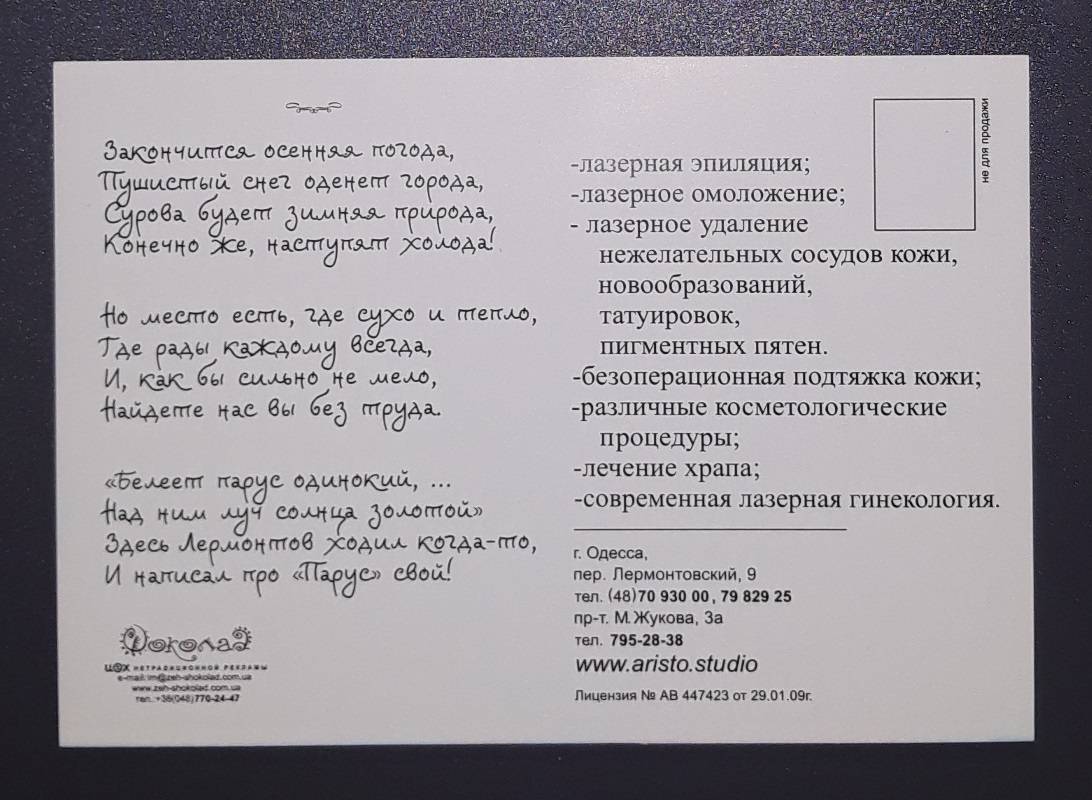 Закончится осенняя погода,
Пушистый снег оденет города,
Сурова будет зимняя природа,
Конечно же, наступят холода!
Но место есть, где сухо и тепло,
Где рады каждому всегда,
И, как бы сильно не мело,
Найдете нас вы без труда.
«Белеет парус одинокий, ...
Над ним луч солнца золотой»
Здесь Лермонтов ходил когда-то,
И написал про «Парус» свой!
Шоколад
ЦЕХ НЕТРАДИЦИОННОЙ РЕКЛАМЫ
e-mail: im@zeh-shokolad.com.ua
www.zeh-shokolad.com.ua
тел.:+38(048)770-24-47
не для продажи
-лазерная эпиляция;
-лазерное омоложение;
- лазерное удаление
нежелательных сосудов кожи,
новообразований,
татуировок,
пигментных пятен.
-безоперационная подтяжка кожи;
-различные косметологические
процедуры;
-лечение храпа;
-современная лазерная гинекология.
г. Одесса,
пер. Лермонтовский, 9
тел. (48)70 930 00, 79 829 25
пр-т. М.Жукова, 3а
тел. 795-28-38
www.aristo.studio
Лицензия № АВ 447423 от 29.01.09г.